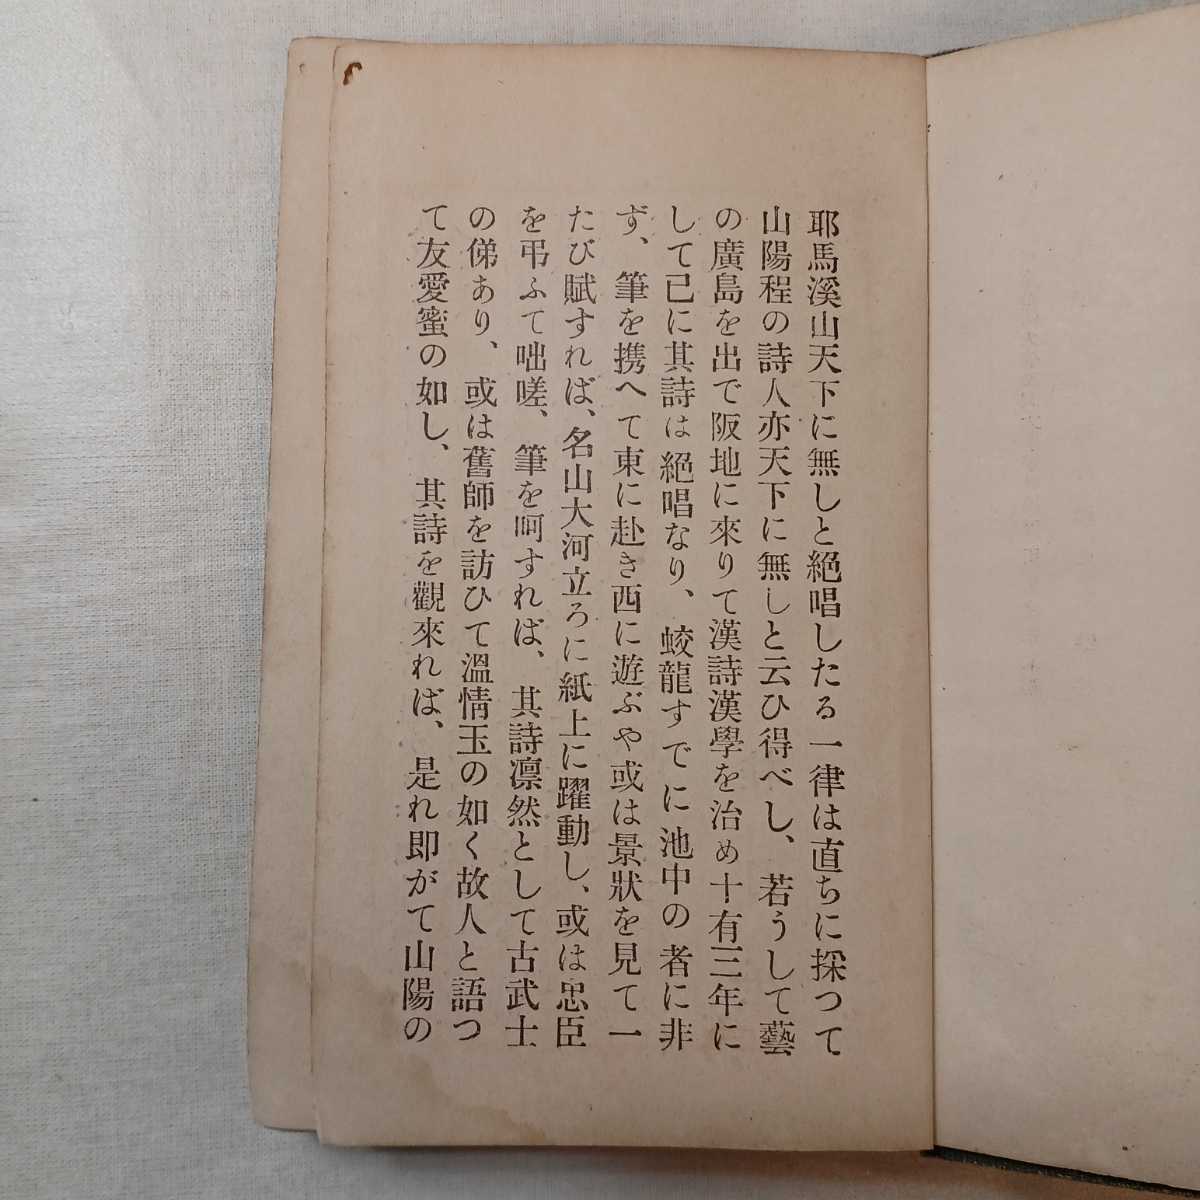 耶馬溪山天下に無しと絕唱したる一律は直ちに採つて
山陽程の詩人亦天下に無しと云ひ得べし、若うして藝
の廣島を出で阪地に來りて漢詩漢學を治め十有三年に
して已に其詩は絕唱なり、蛟龍すでに池中の者に非
ず、筆を携へて東に赴き西に遊ぶや或は景狀を見て一
たび賦すれば、名山大河立ろに紙上に躍動し、或は忠臣
を弔ふて咄嗟、筆を呵すれば、其詩凛然として古武士
の俤あり、或は舊師を訪ひて溫情玉の如く故人と語つ
て友愛蜜の如し、其詩を觀來れば、是れ卽がて山陽の